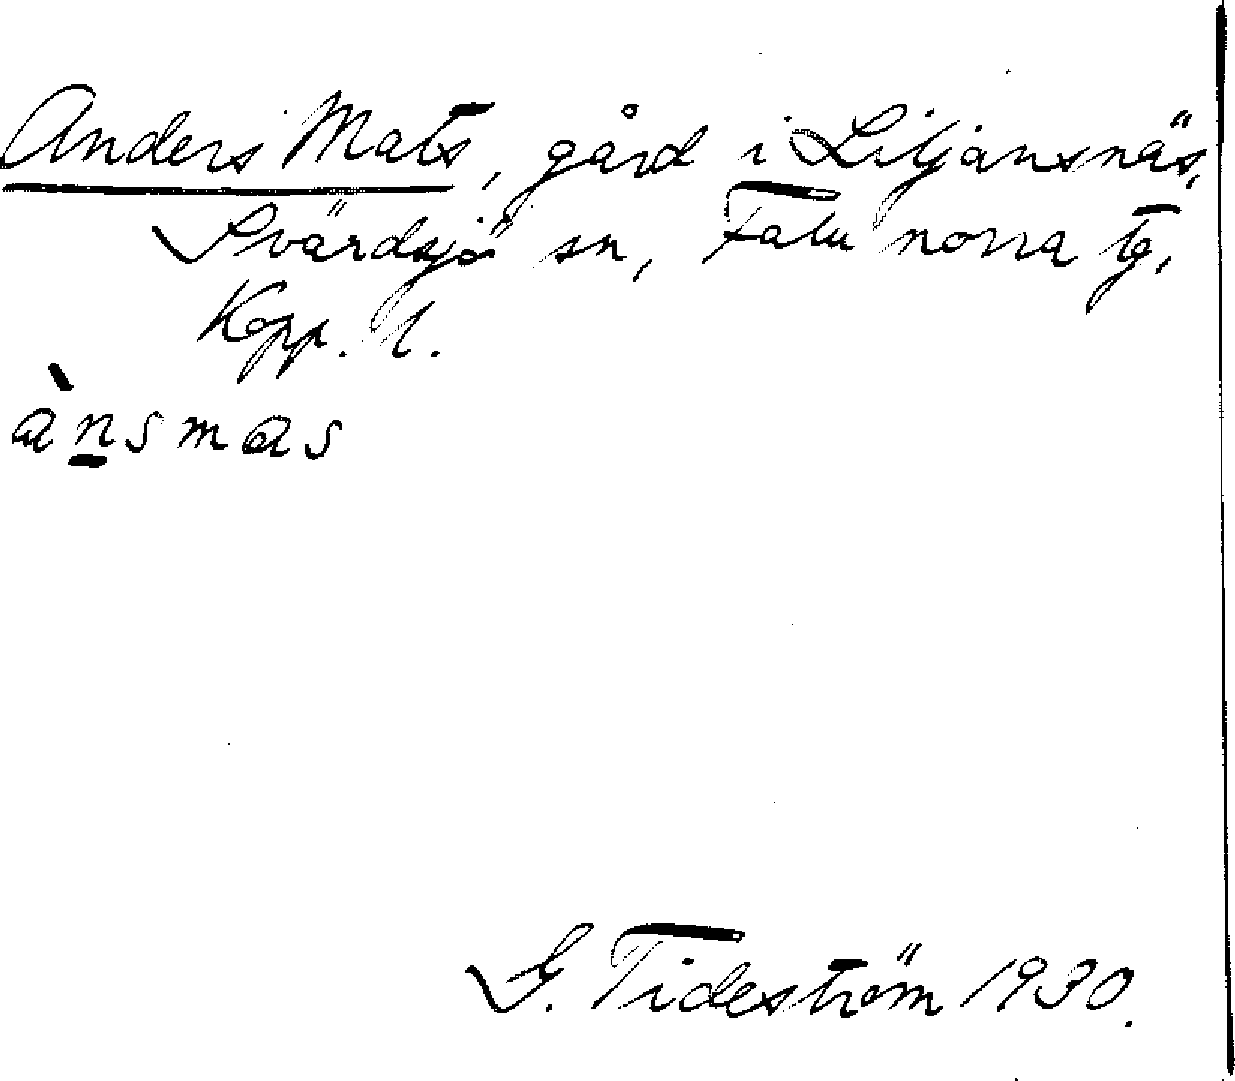 Anders Mats, gård i Liljansnäs,
Svärdsjö sn, Falu norra tg,
Kopp. l.
ànsmas
G. Tideström 1930.